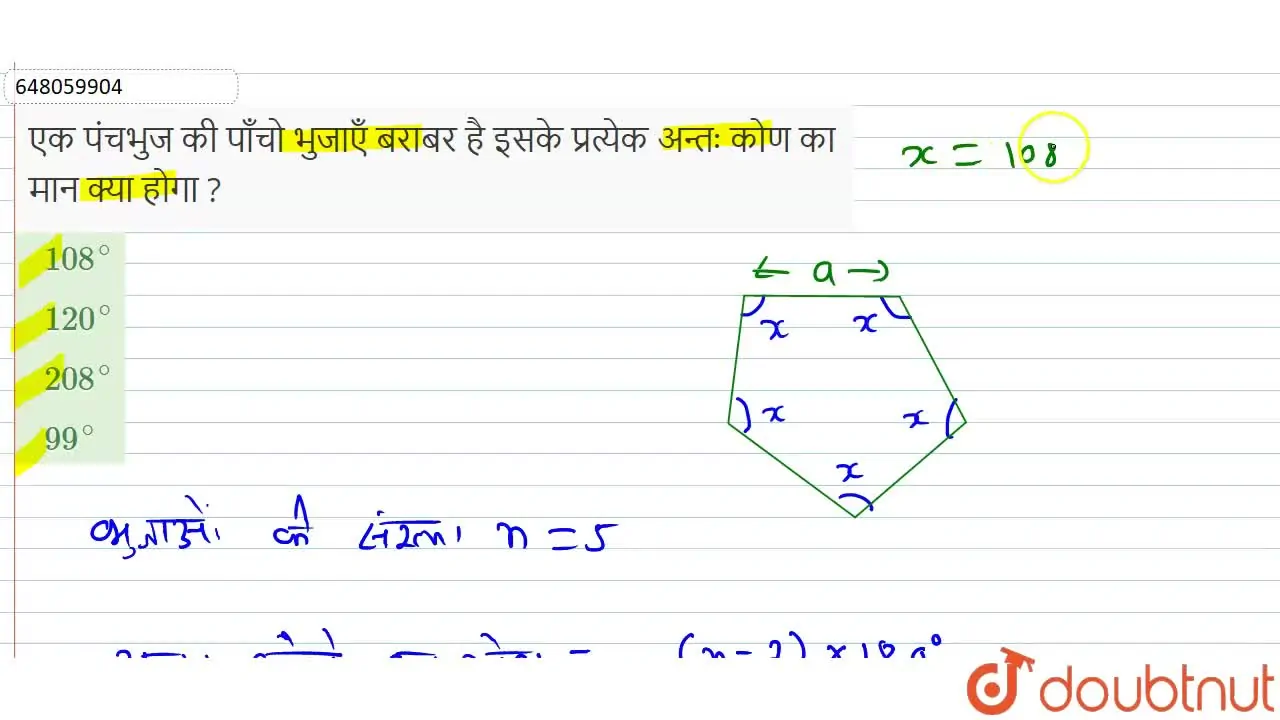 648059904
एक पंचभुज की पाँचो भुजाएँ बराबर है इसके प्रत्येक अन्तः कोण का
मान क्या होगा ?
x = 108
108°
120°
208°
99°
← a →
x x
x x
x
भुजाओं की संख्या n = 5
(n-2) × 180°
doubtnut